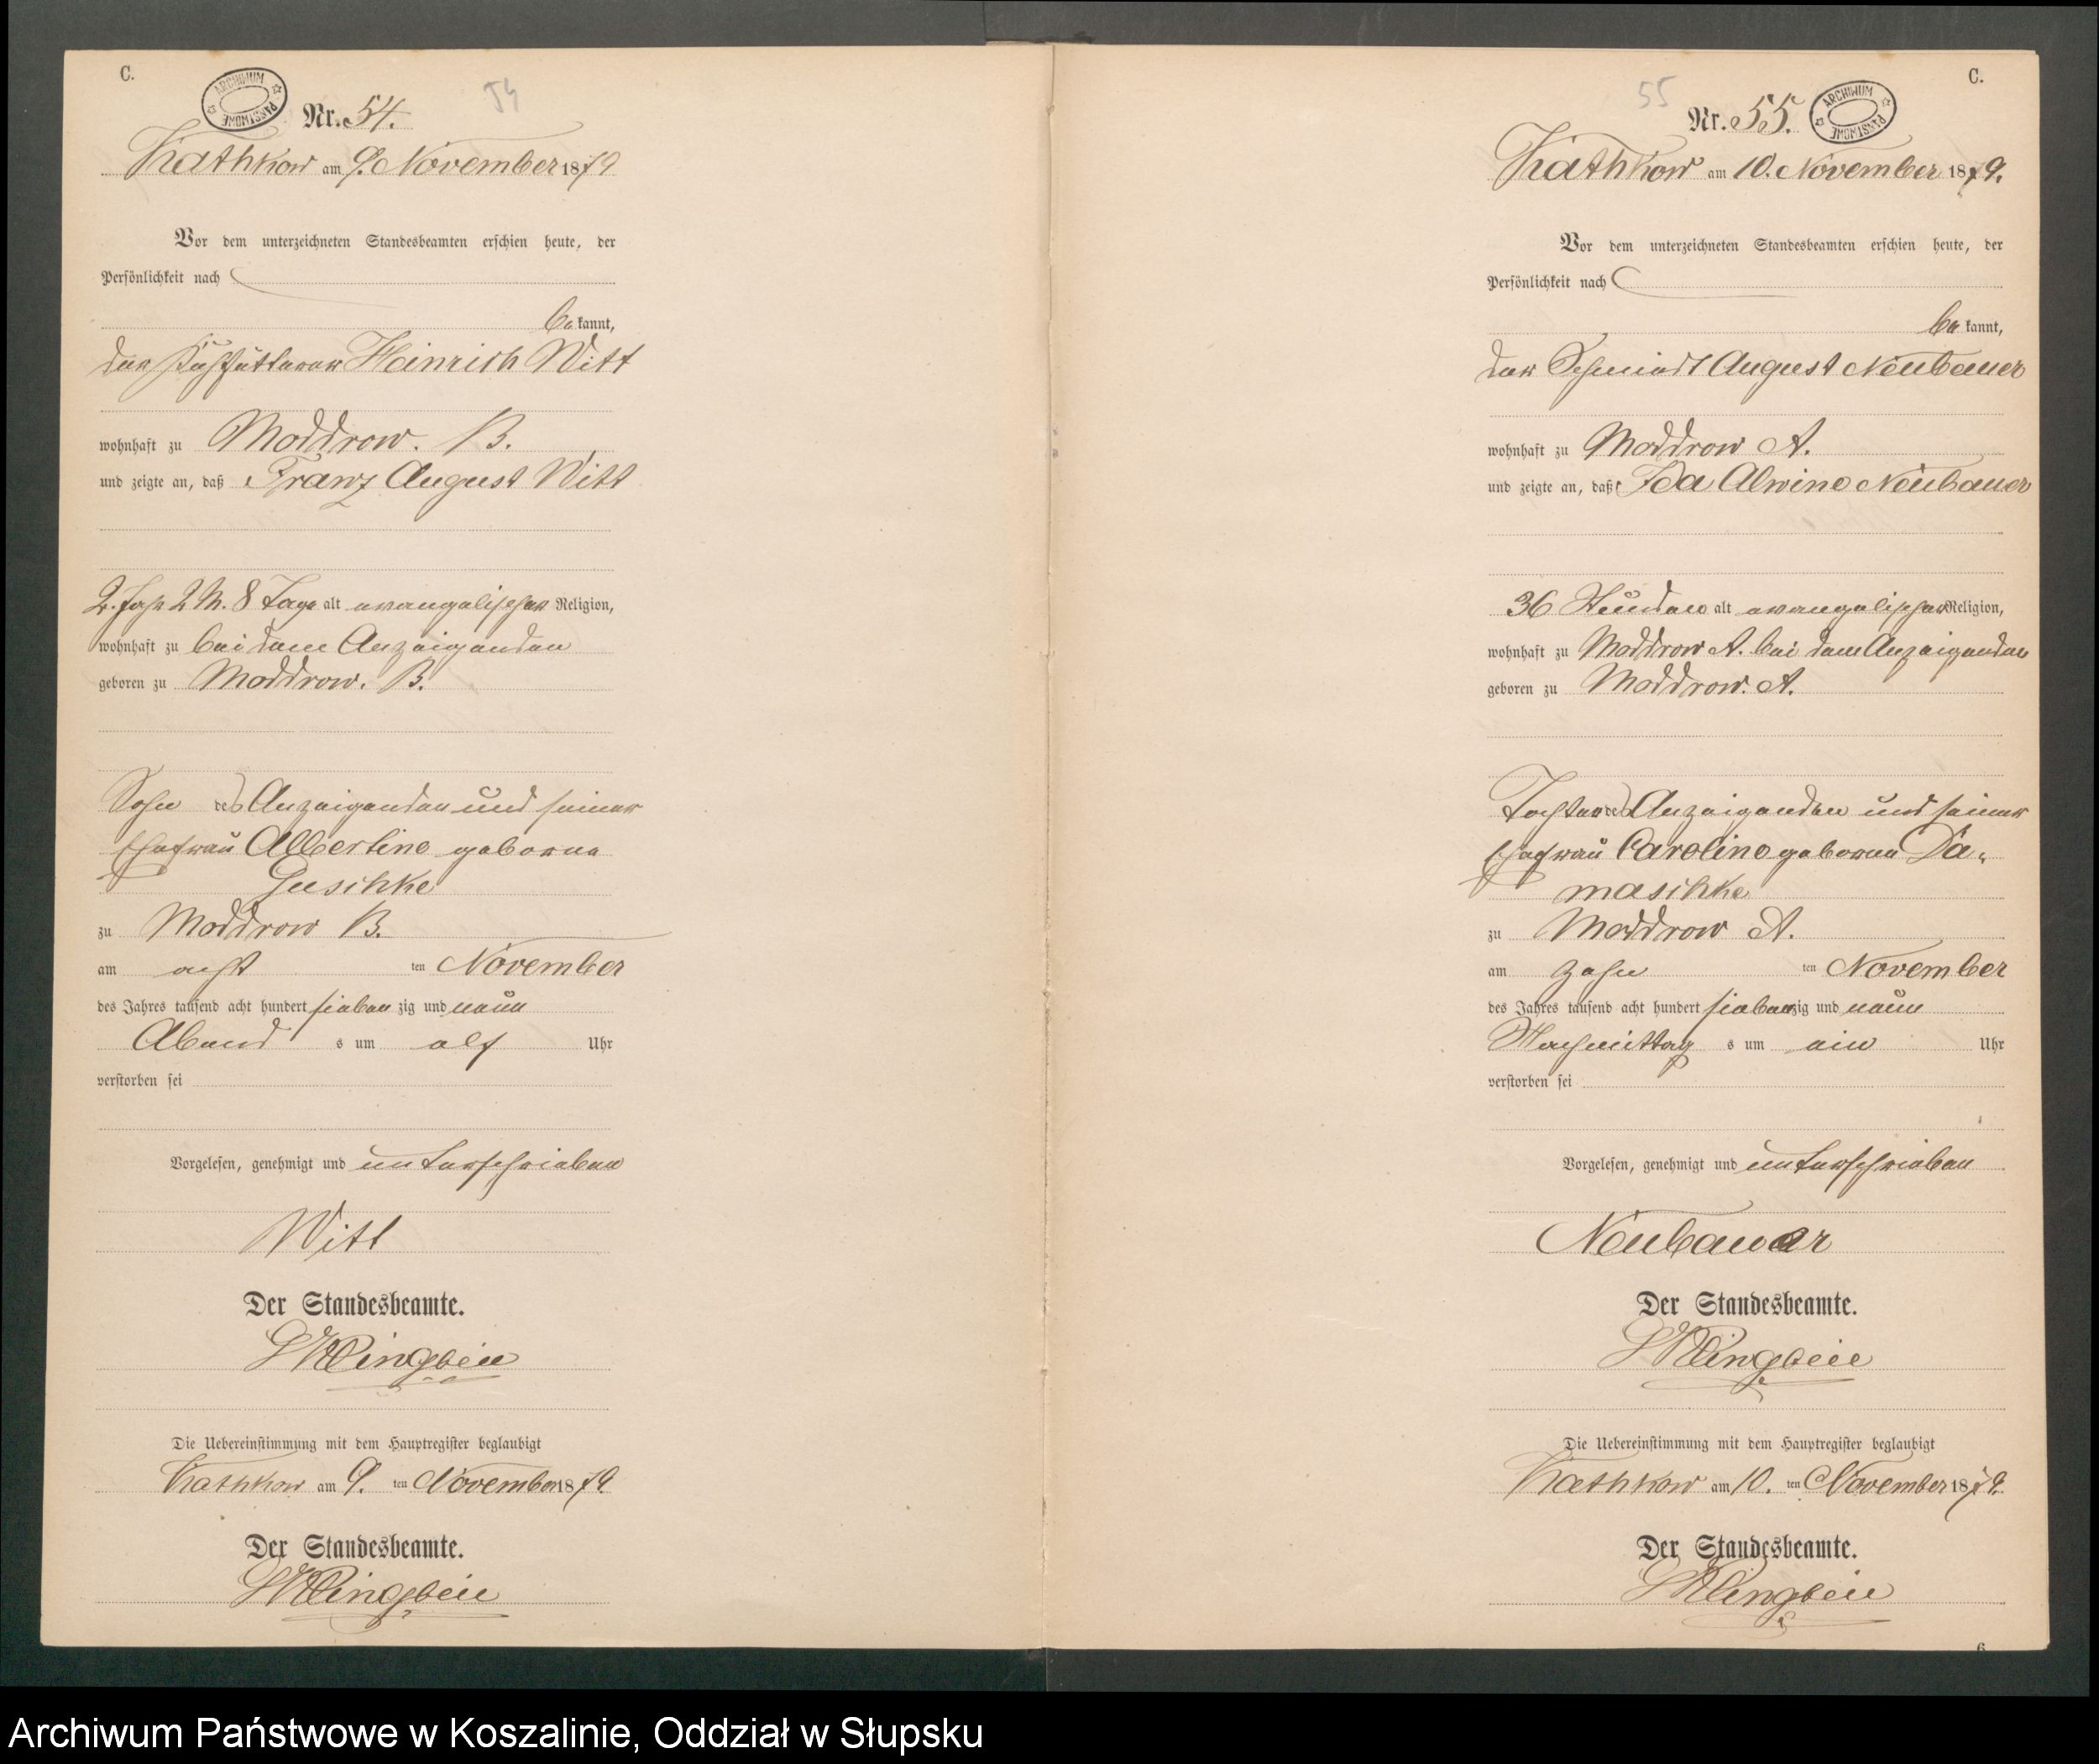 C.
ARCHIWUM PAŃSTWOWE
54
Nr. 54.
Kathkow am 9. November 1879
Vor dem unterzeichneten Standesbeamten erschien heute, der
Persönlichkeit nach
be kannt,
der Kuhfütterer Heinrich Witt
wohnhaft zu Moddrow. B.
und zeigte an, daß Franz August Witt
2. Jahr 2 M. 8 Tage alt evangelischer Religion,
wohnhaft zu bei dem Anzeigenden
geboren zu Moddrow. B.
Sohn des Anzeigenden und seiner
Ehefrau Albertine geborne
Guschke
zu Moddrow B.
am acht ten November
des Jahres tausend acht hundert sieben zig und neun
Abend s um elf Uhr
verstorben sei
Vorgelesen, genehmigt und unterschrieben
Witt
Der Standesbeamte.
Klingbeil
Die Uebereinstimmung mit dem Hauptregister beglaubigt
Kathkow am 9. ten November 1879.
Der Standesbeamte.
Klingbeil
C.
55
Nr. 55.
ARCHIWUM PAŃSTWOWE
Kathkow am 10. November 1879.
Vor dem unterzeichneten Standesbeamten erschien heute, der
Persönlichkeit nach
be kannt,
der Schmiedt August Neubauer
wohnhaft zu Moddrow A.
und zeigte an, daß Ida Alwine Neubauer
36 Stunden alt evangelischer Religion,
wohnhaft zu Moddrow A. bei dem Anzeigenden
geboren zu Moddrow. A.
Tochter des Anzeigenden und seiner
Ehefrau Caroline geborne Da-
maschke
zu Moddrow A.
am zehn ten November
des Jahres tausend acht hundert siebenzig und neun
Nachmittag s um ein Uhr
verstorben sei
Vorgelesen, genehmigt und unterschrieben
Neubauer
Der Standesbeamte.
Klingbeil
Die Uebereinstimmung mit dem Hauptregister beglaubigt
Kathkow am 10. ten November 1879.
Der Standesbeamte.
Klingbeil
6
Archiwum Państwowe w Koszalinie, Oddział w Słupsku